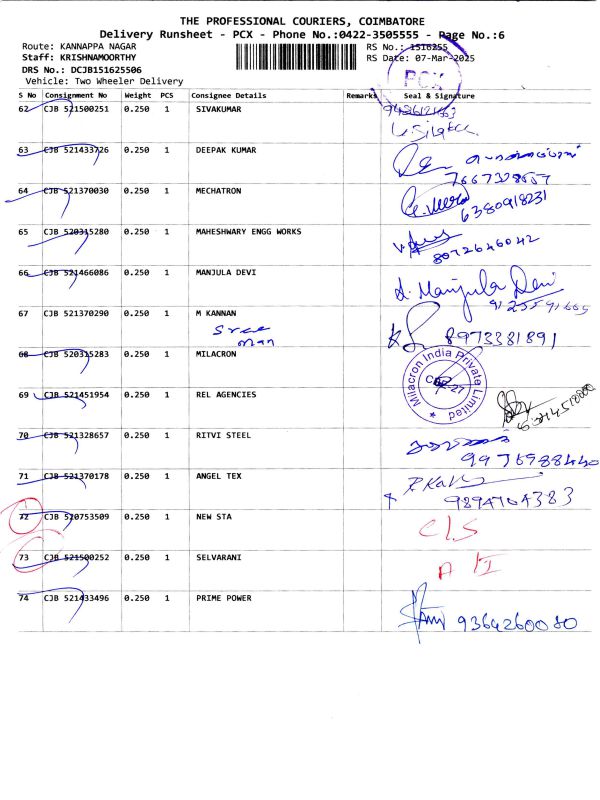 THE PROFESSIONAL COURIERS, COIMBATORE
Delivery Runsheet - PCX - Phone No.:0422-3505555 - Page No.:6
Route: KANNAPPA NAGAR
RS No.: 1516255
Staff: KRISHNAMOORTHY
RS Date: 07-Mar-2025
DRS No.: DCJB151625506
PCX
Vehicle: Two Wheeler Delivery
S No Consignment No Weight PCS Consignee Details Remarks Seal & Signature
62 CJB 521500251 0.250 1 SIVAKUMAR
63 CJB 521433726 0.250 1 DEEPAK KUMAR
64 CJB 521370030 0.250 1 MECHATRON
6380918231
65 CJB 520315280 0.250 1 MAHESHWARY ENGG WORKS
8072646042
66 CJB 521466086 0.250 1 MANJULA DEVI
d. Manjula Devi
67 CJB 521370290 0.250 1 M KANNAN
Sree
man
8973381891
68 CJB 520315283 0.250 1 MILACRON
Milacron India Private Limited
69 CJB 521451954 0.250 1 REL AGENCIES
70 CJB 521328657 0.250 1 RITVI STEEL
9976988440
71 CJB 521370178 0.250 1 ANGEL TEX
9894764383
72 CJB 520753509 0.250 1 NEW STA
C/S
73 CJB 521500252 0.250 1 SELVARANI
74 CJB 521433496 0.250 1 PRIME POWER
9364260080